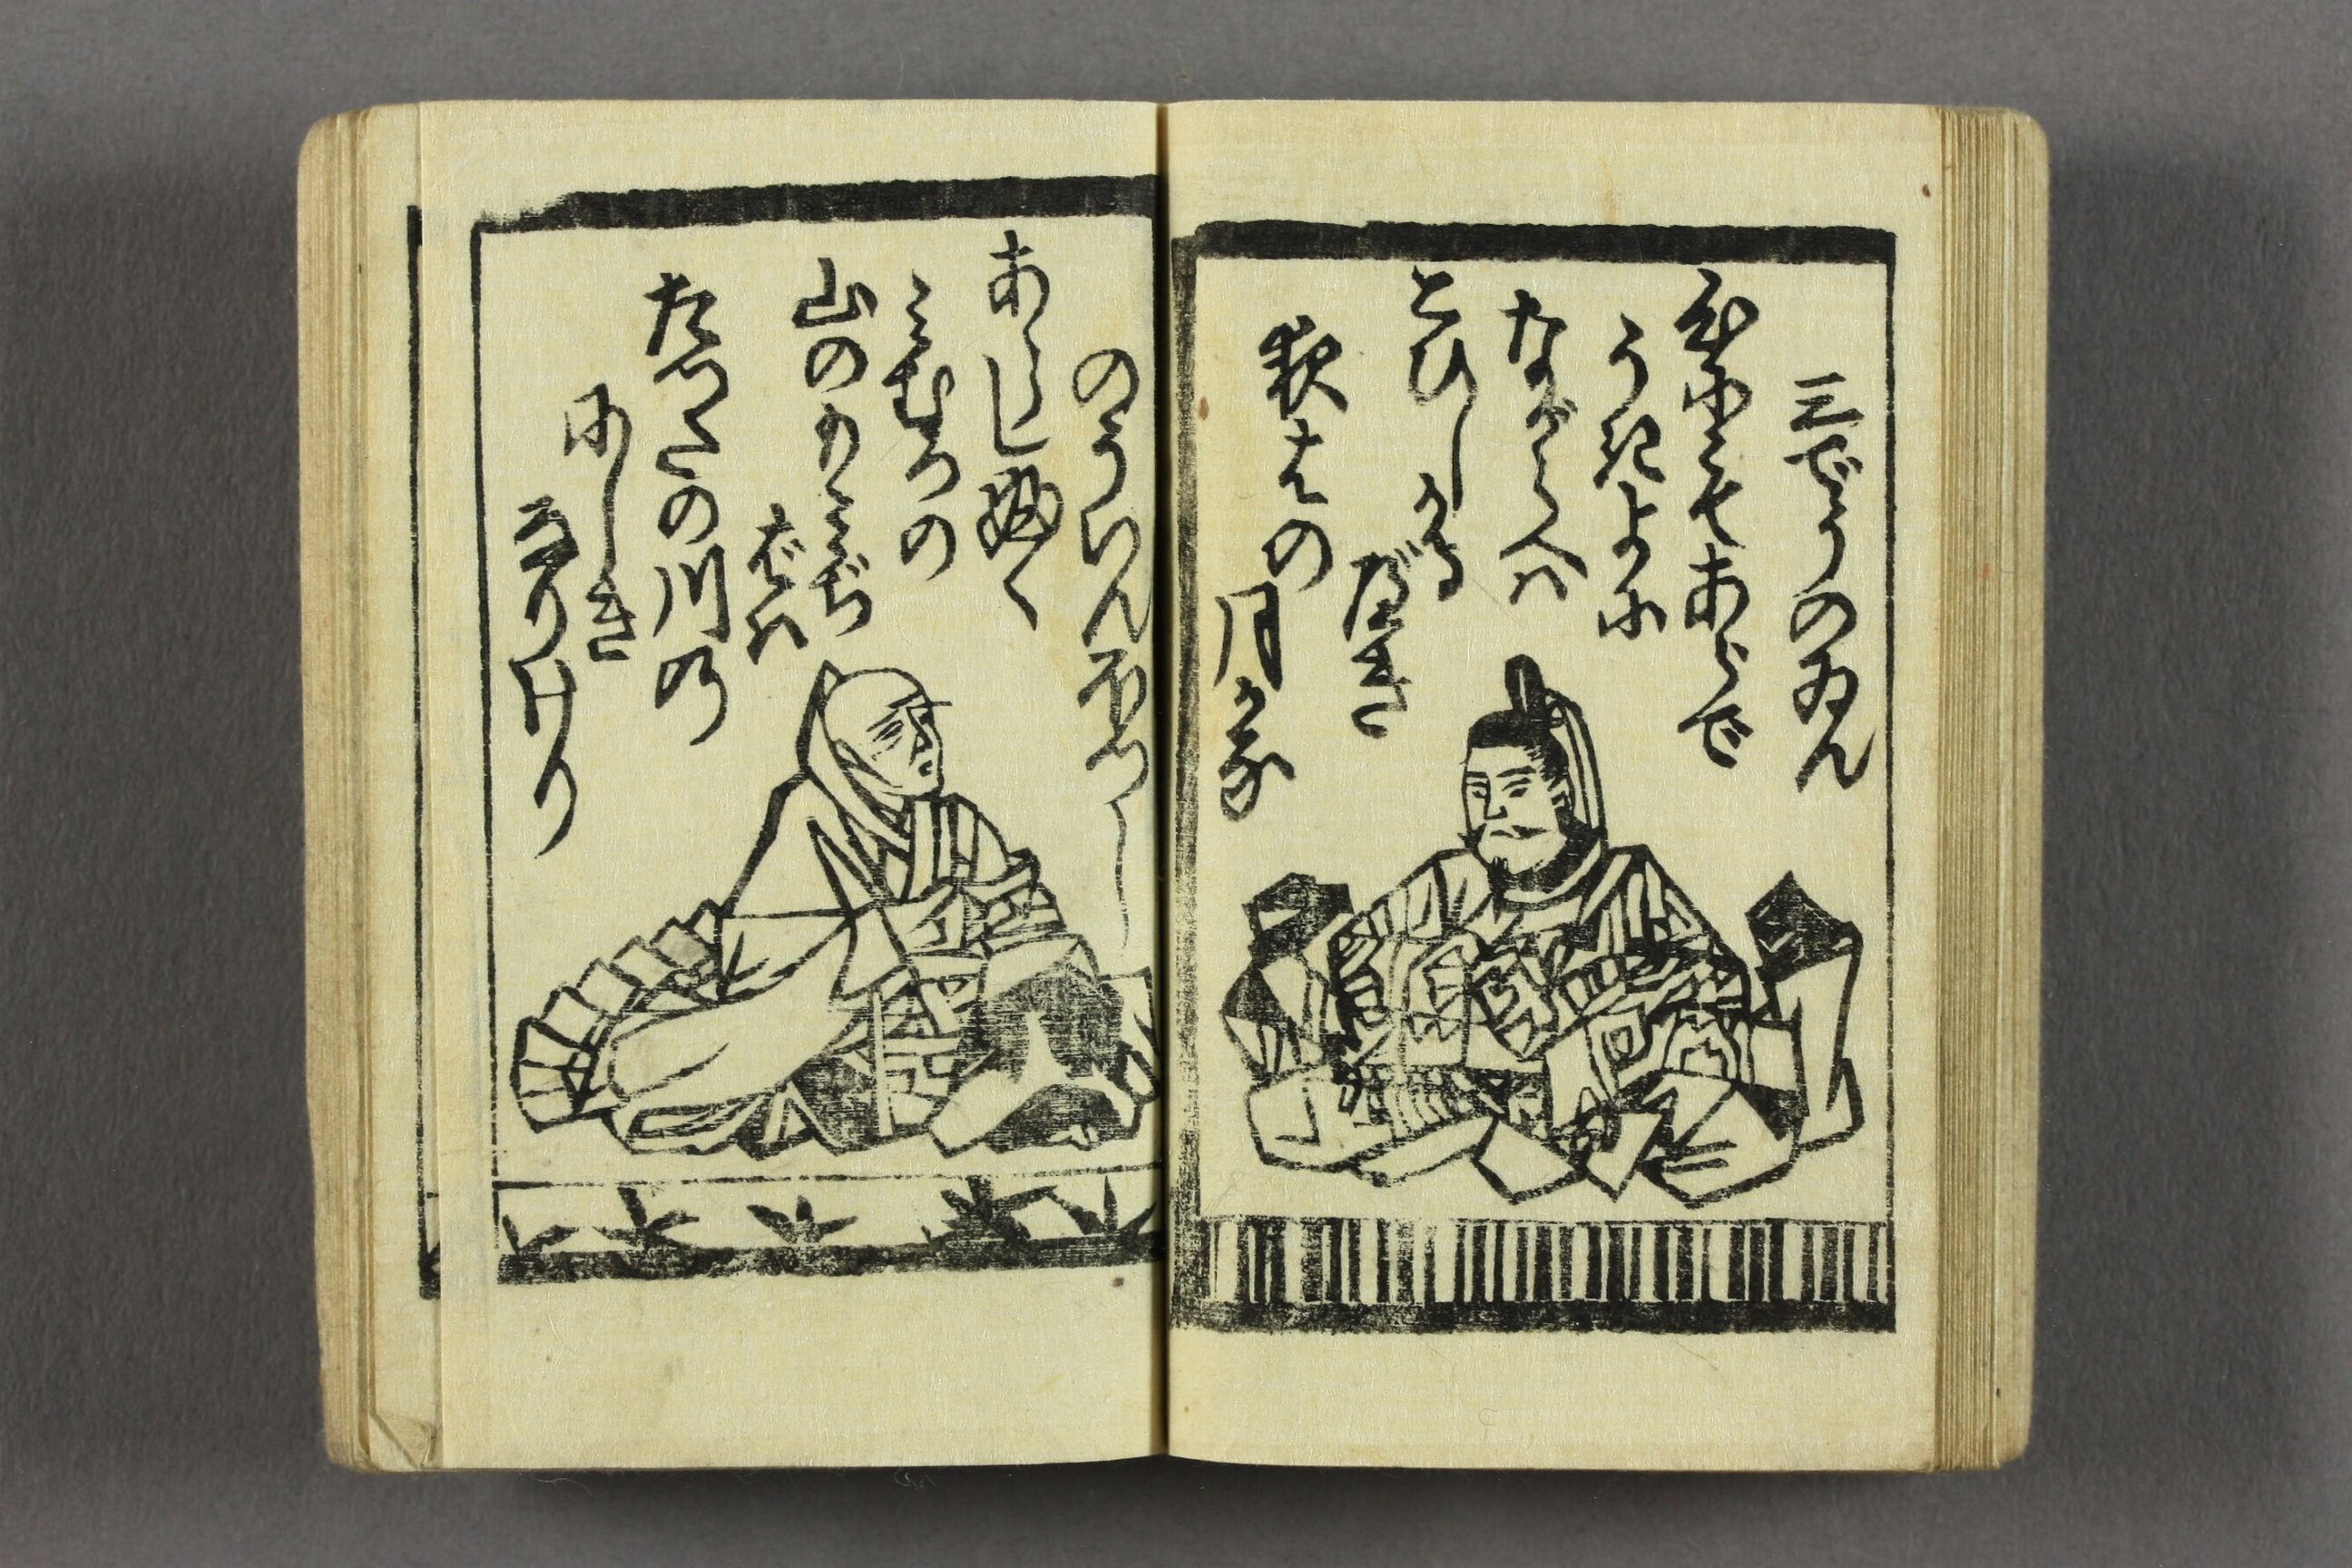 三でうのゐん
心にもあらで
うきよに
ながらへハ
こひしかる
べき
夜はの
月かな
のういんほつし
あらしふく
みむろの
山のもみぢ
ばハ
たつたの川の
にしき
なりけり